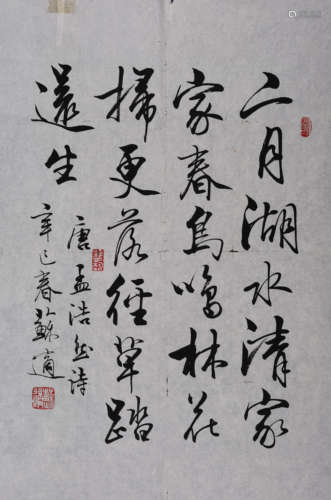 二月湖水清家
家春鸟鸣林花
掃更落径草踏
還生
唐孟浩然诗
辛巳春蘇適